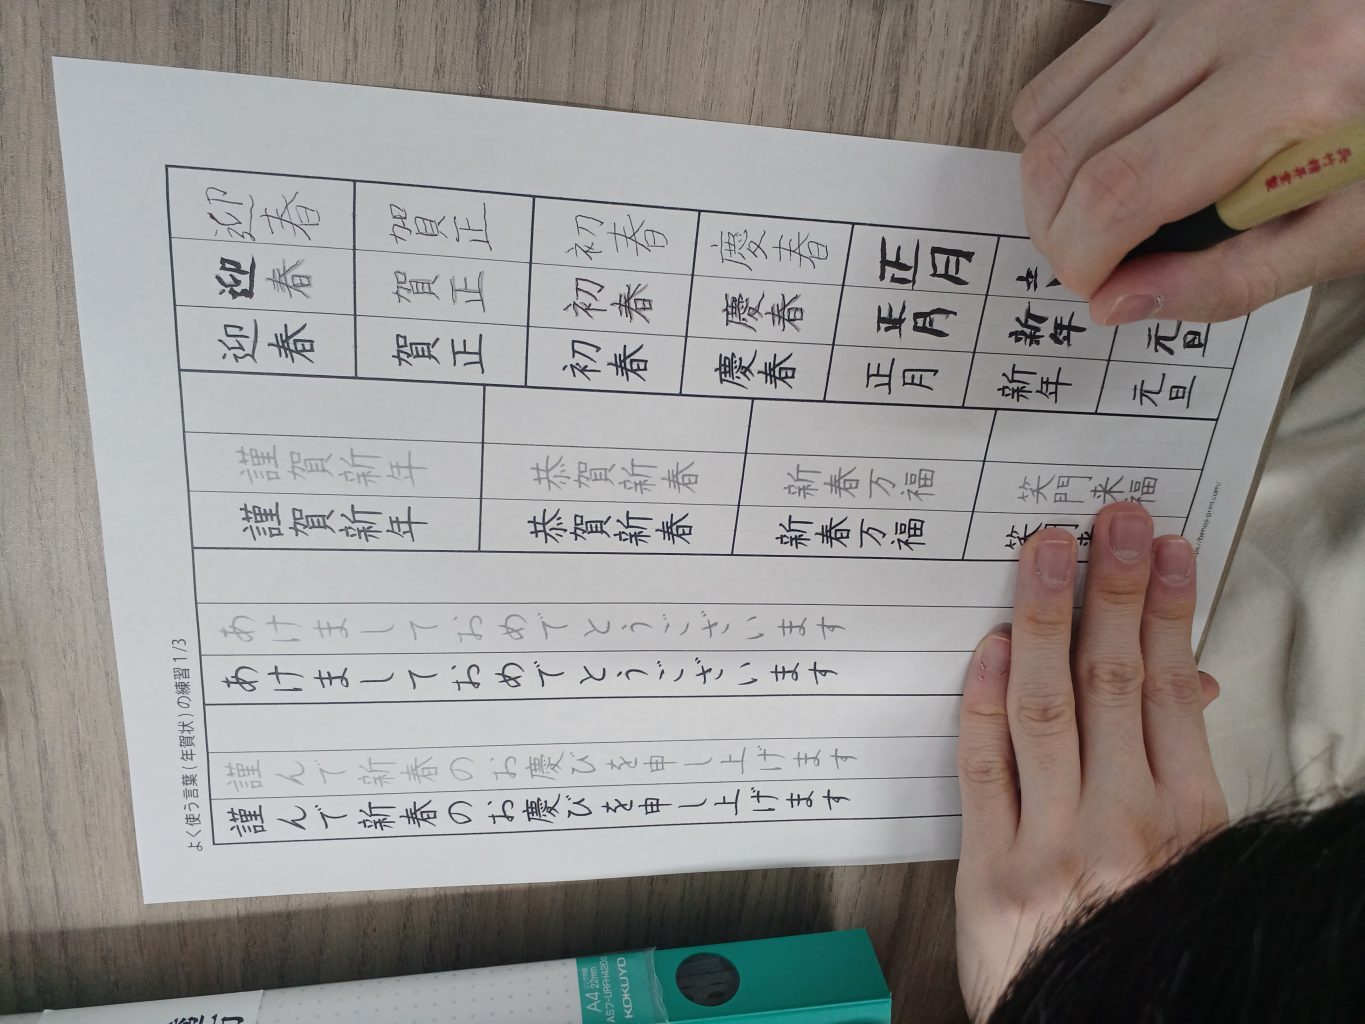 よく使う言葉(年賀状)の練習1/3
迎春
賀正
初春
慶春
正月
迎春
賀正
初春
慶春
正月
新年
元旦
迎春
賀正
初春
慶春
正月
新年
元旦
謹賀新年
恭賀新春
新春万福
笑門来福
謹賀新年
恭賀新春
新春万福
笑門
あけましておめでとうございます
あけましておめでとうございます
謹んで新春のお慶びを申し上げます
謹んで新春のお慶びを申し上げます
呉竹精昇堂製
A4
22mm
KOKUYO